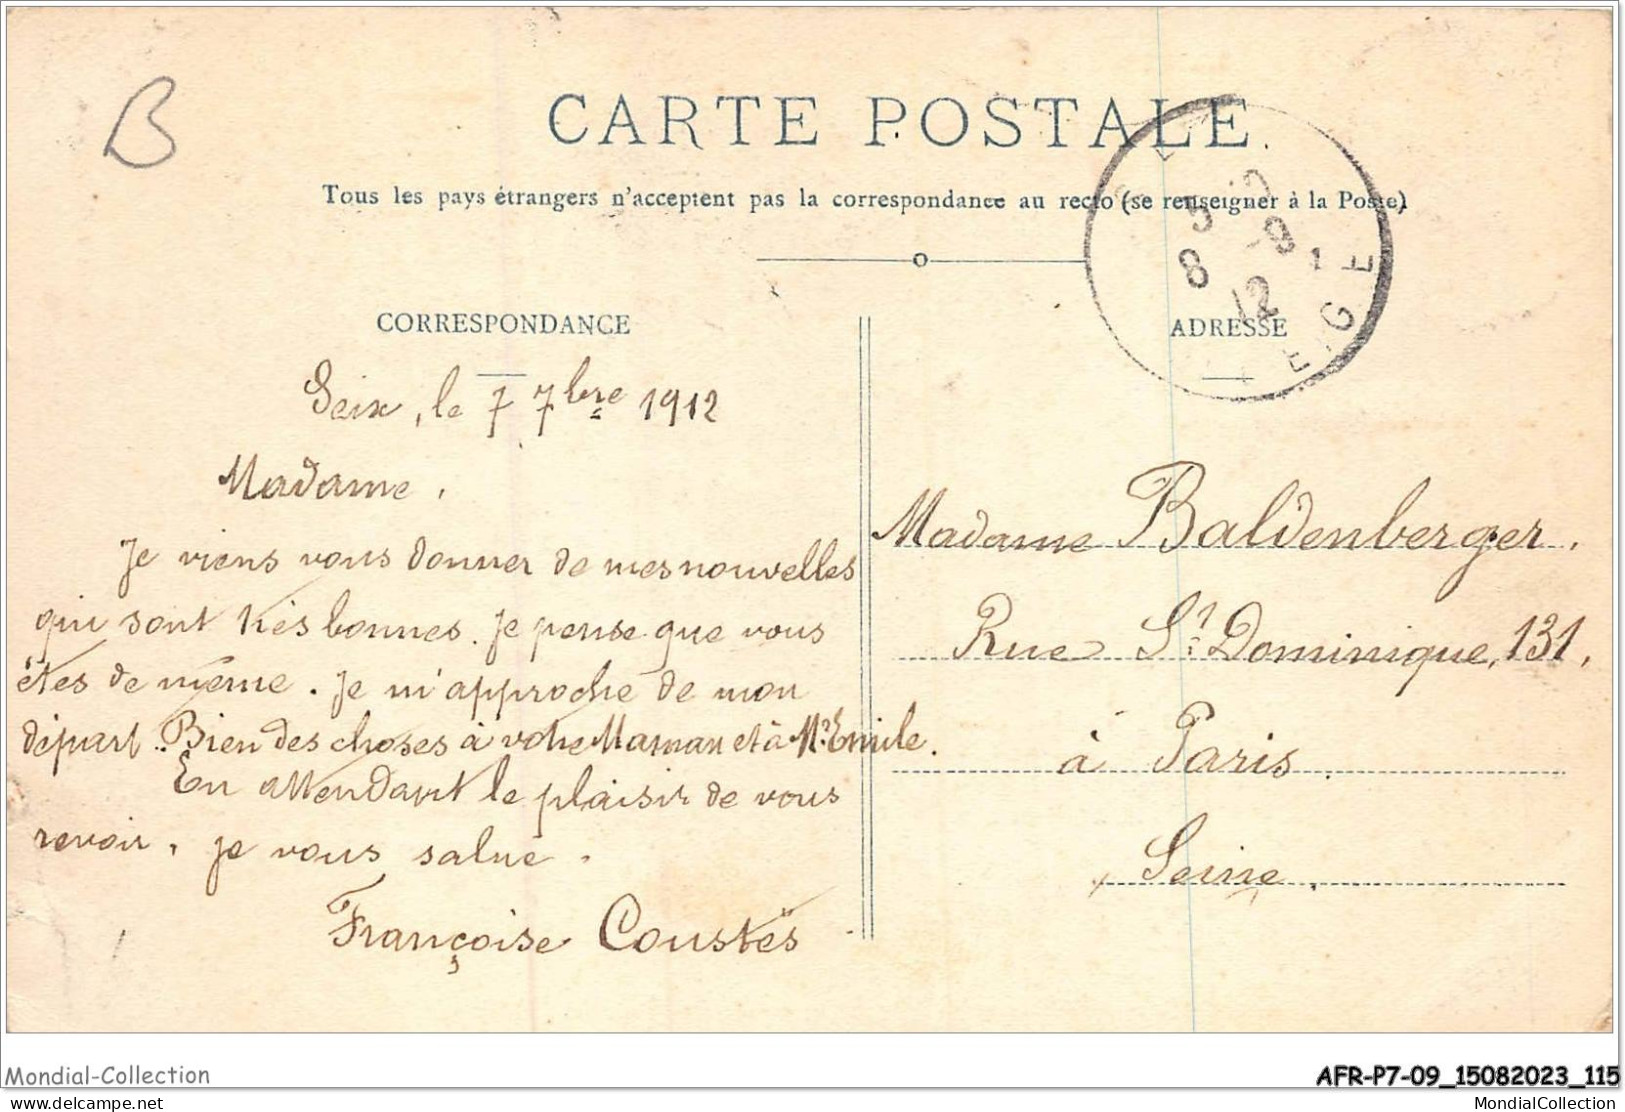 B
CARTE POSTALE
Tous les pays étrangers n'acceptent pas la correspondance au recto (se renseigner à la Poste)
CORRESPONDANCE
Seix, le 7 7bre 1912
Madame,
Je viens vous donner de mes nouvelles
qui sont très bonnes. Je pense que vous
êtes de même. Je m'approche de mon
départ. Bien des choses à votre Maman et à Mr Emile.
En attendant le plaisir de vous
revoir, je vous salue.
Françoise Coustès
ADRESSE
8 -9
12
Madame Baldenberger,
Rue St Dominique, 131,
à Paris.
Seine.
Mondial-Collection
delcampe.net
AFR-P7-09_15082023_115
MondialCollection